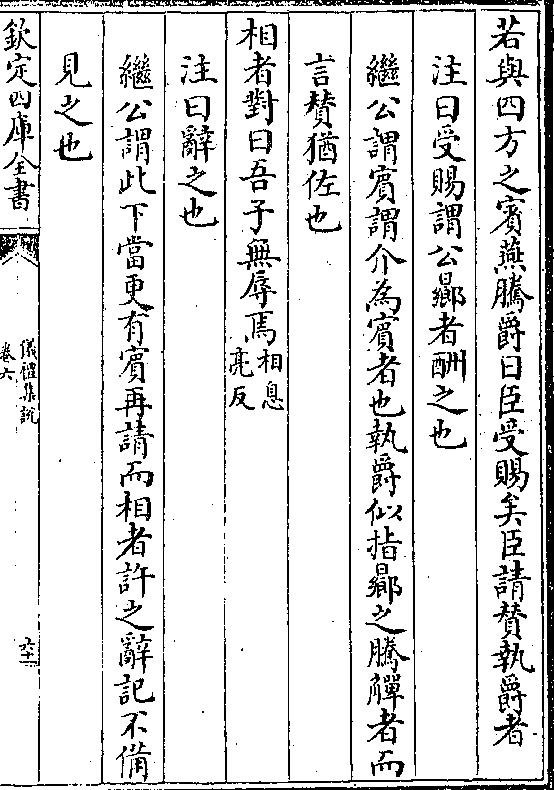 若與四方之賓燕騰爵曰臣受賜矣臣請賛執爵者
注曰受賜謂公鄊者酬之也
繼公謂賓謂介為賓者也執爵似指鄊之騰觶者而
言賛猶佐也
相者對曰吾子無辱焉相息亮反
注曰辭之也
繼公謂此下當更有賓再請而相者許之辭記不備
見之也
欽定四庫全書
儀禮集說
卷六